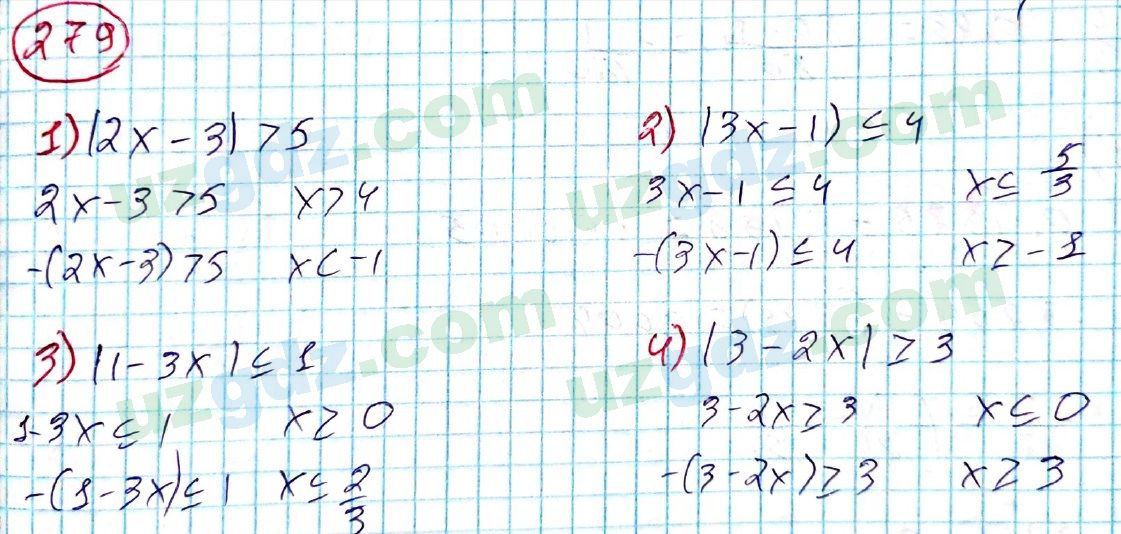 279
1) |2x - 3| > 5
2x - 3 > 5 x > 4
-(2x - 3) > 5 x < -1
2) |3x - 1) ≤ 4
3x - 1 ≤ 4 x ≤ 5/3
-(3x - 1) ≤ 4 x ≥ -1
3) |1 - 3x| ≤ 1
1 - 3x ≤ 1 x ≥ 0
-(1 - 3x) ≤ 1 x ≤ 2/3
4) |3 - 2x| ≥ 3
3 - 2x ≥ 3 x ≤ 0
-(3 - 2x) ≥ 3 x ≥ 3
uzgdz.com
uzgdz.com
uzgdz.com
uzgdz.com